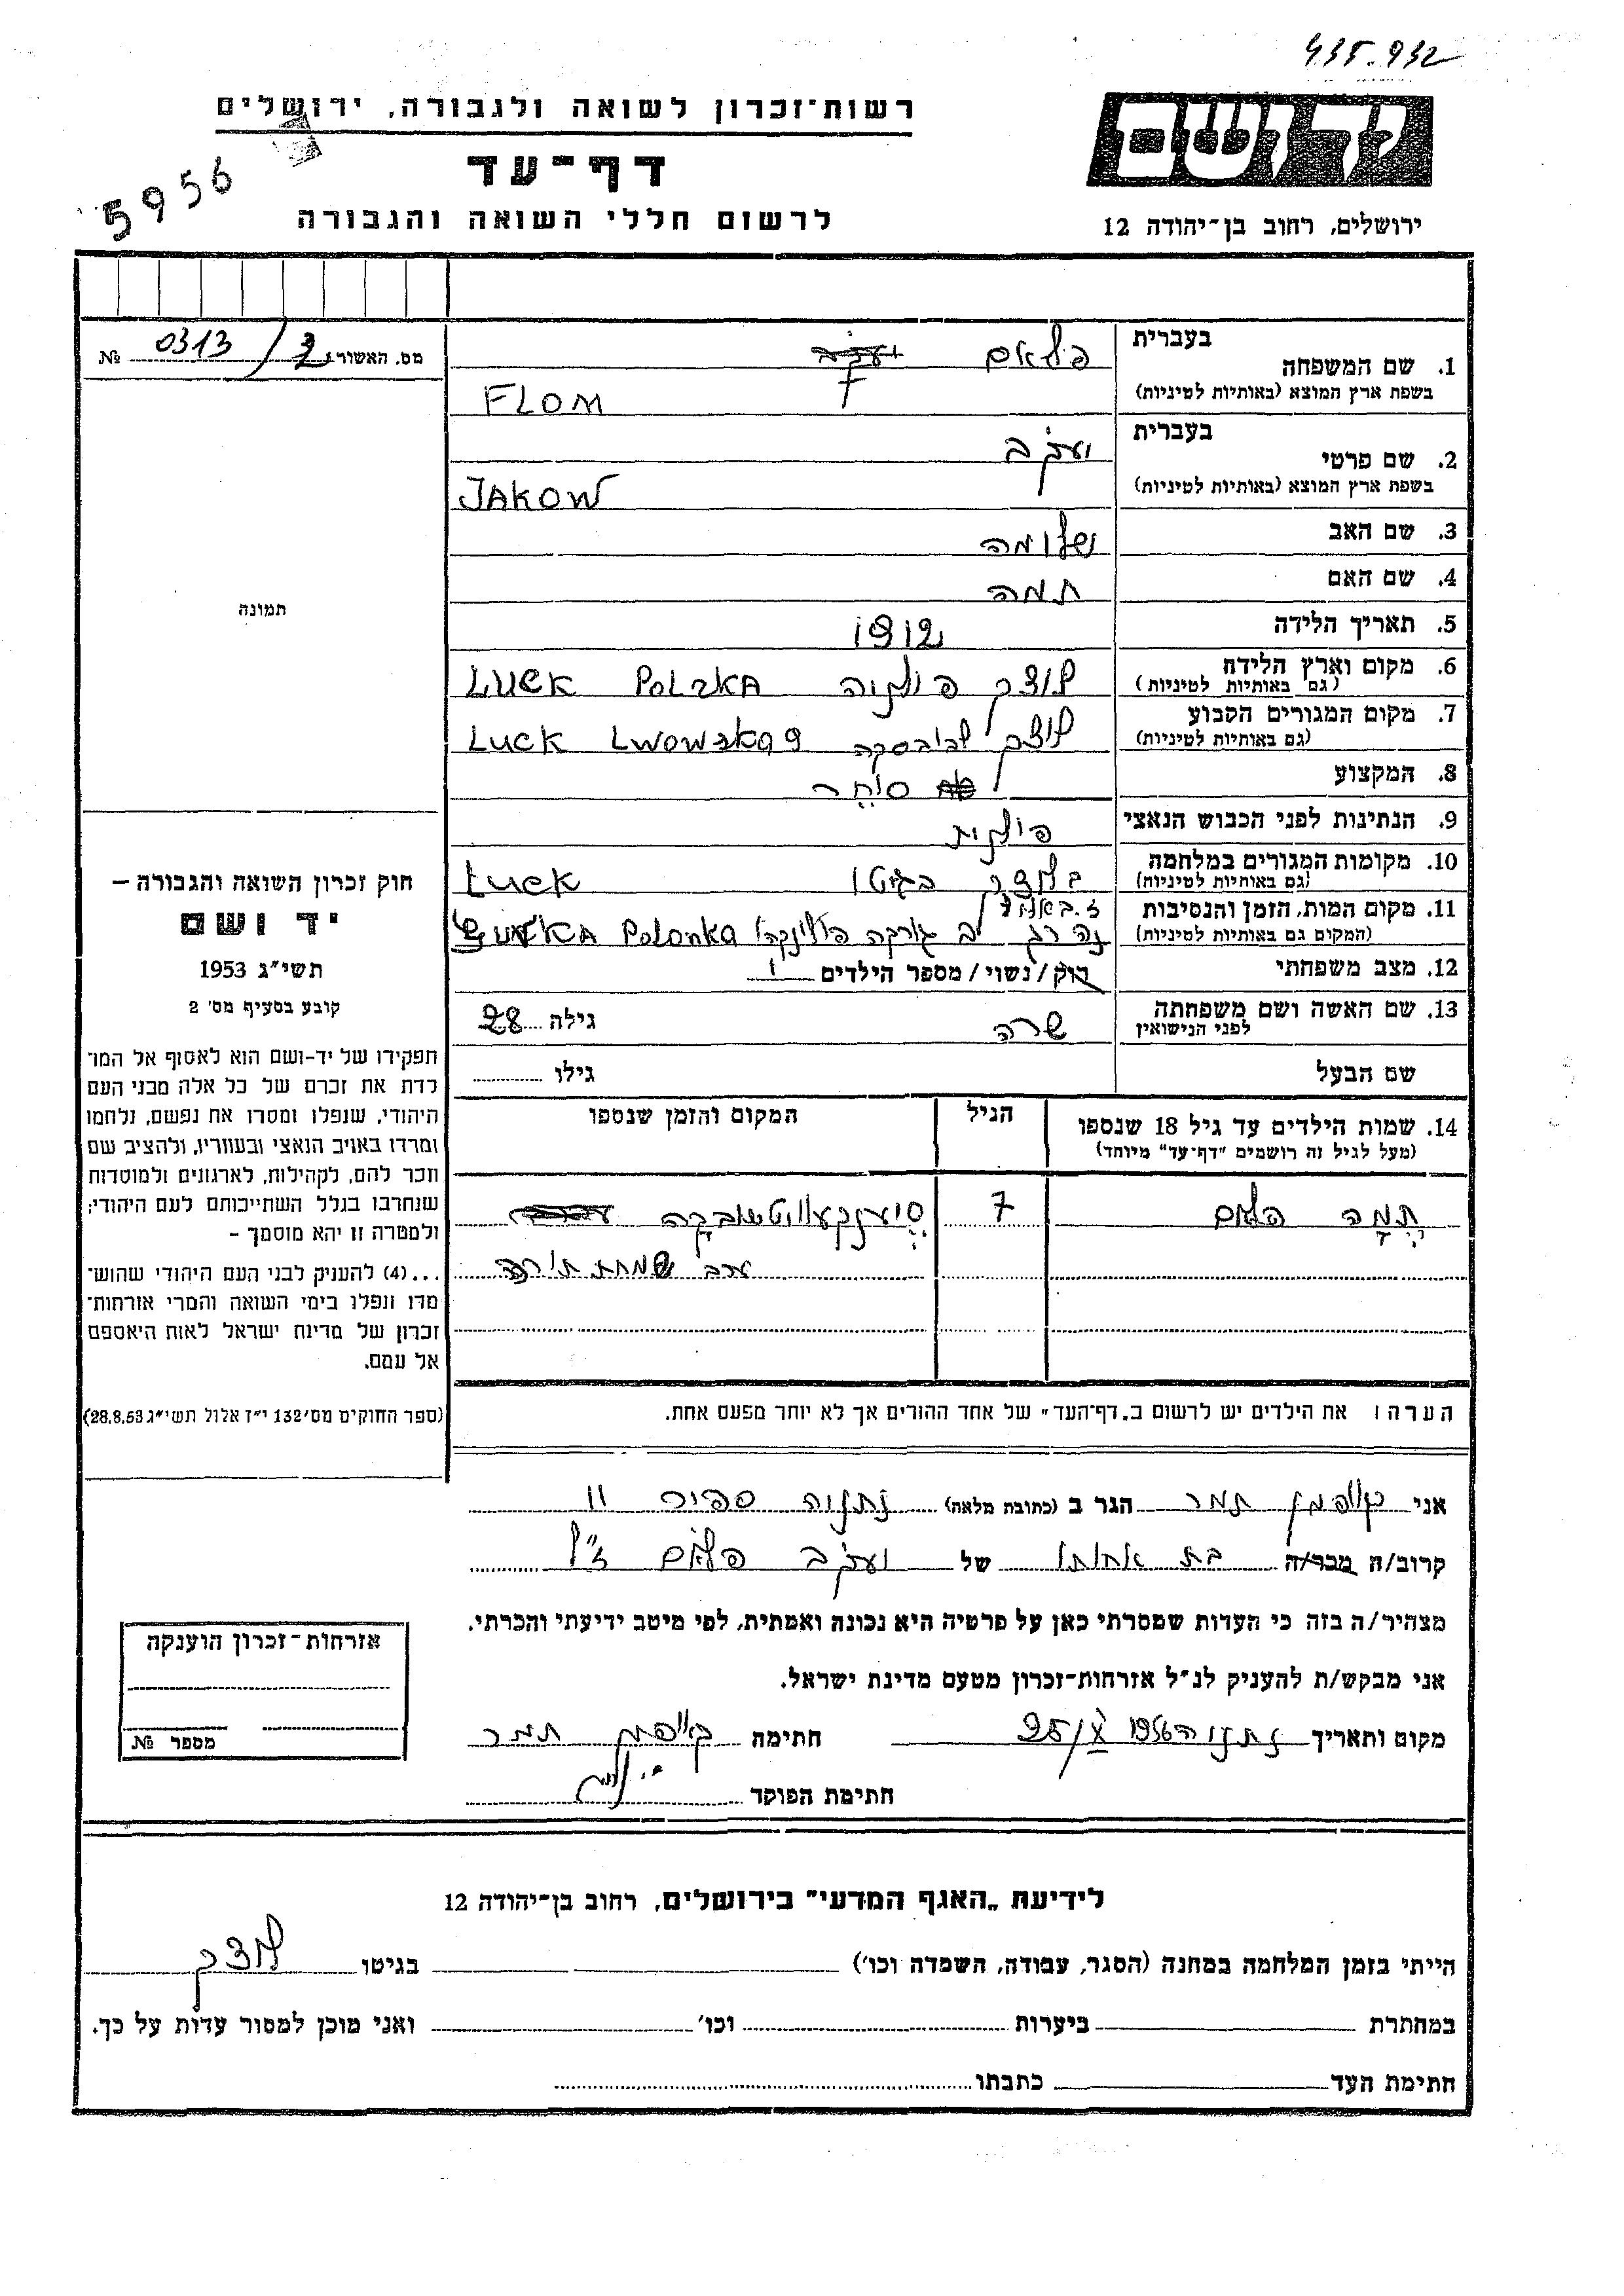 435-932
רשות־זכרון לשואה ולגבורה, ירושלים
ידושם
5956
דף־עד
לרשום חללי השואה והגבורה
ירושלים, רחוב בן־יהודה 12
מס. האשור 2/ 0313 №
תמונה
1. שם המשפחה בעברית פלאם
בשפת ארץ המוצא (באותיות לטיניות) FLOM
2. שם פרטי בעברית יעקב
בשפת ארץ המוצא (באותיות לטיניות) JAKOW
3. שם האב שלומה
4. שם האם תמה
5. תאריך הלידה 1912
6. מקום וארץ הלידה לוצק פולניה LUCK POLSKA
(גם באותיות לטיניות)
7. מקום המגורים הקבוע לוצק לבובסקה LUCK LWOWSKA 9
(גם באותיות לטיניות)
8. המקצוע סוחר
9. הנתינות לפני הכבוש הנאצי פולנית
10. מקומות המגורים במלחמה בלוצק בגיטו Łuck
(גם באותיות לטיניות)
11. מקום המות, הזמן והנסיבות נהרג ב גורקה פולונקה Polonka
(המקום גם באותיות לטיניות)
12. מצב משפחתי רוק/נשוי/מספר הילדים 1
13. שם האשה ושם משפחתה שרה גילה 28
לפני הנישואין
שם הבעל גילו
14. שמות הילדים עד גיל 18 שנספו הגיל המקום והזמן שנספו
(מעל לגיל זה רושמים "דף־עד" מיוחד)
תמה פלאם 7
ערב שמחת תורה
הערה: את הילדים יש לרשום ב„דף־העד" של אחד ההורים אך לא יותר מפעם אחת.
חוק זכרון השואה והגבורה –
יד ושם
תשי"ג 1953
קובע בסעיף מס' 2
תפקידו של יד-ושם הוא לאסוף אל המו־
לדת את זכרם של כל אלה מבני העם
היהודי, שנפלו ומסרו את נפשם, נלחמו
ומרדו באויב הנאצי ובעוזריו, ולהציב שם
וזכר להם, לקהילות, לארגונים ולמוסדות
שנחרבו בגלל השתייכותם לעם היהודי;
ולמטרה זו יהא מוסמך –
...(4) להעניק לבני העם היהודי שהוש־
מדו ונפלו בימי השואה והמרי אזרחות־
זכרון של מדינת ישראל לאות היאספם
אל עמם.
(ספר החוקים מס' 132 י"ז אלול תשי"ג 28.8.53)
אני קויפמן תמר הגר ב (כתובת מלאה) נתניה ספיר 11
קרוב/ה מכר/ה בת אחותו של יעקב פלאם ז"ל
מצהיר/ה בזה כי העדות שמסרתי כאן על פרטיה היא נכונה ואמתית, לפי מיטב ידיעתי והכרתי.
אני מבקש/ת להעניק לנ"ל אזרחות-זכרון מטעם מדינת ישראל.
מקום ותאריך נתניה 25/X 1956 חתימה קויפמן תמר
חתימת הפוקד
אזרחות-זכרון הוענקה
מספר №
לידיעת „האגף המדעי" בירושלים, רחוב בן-יהודה 12
הייתי בזמן המלחמה במחנה (הסגר, עבודה, השמדה וכו') בגיטו לוצק
במחתרת ביערות וכו' ואני מוכן למסור עדות על כך.
חתימת העד כתבתו